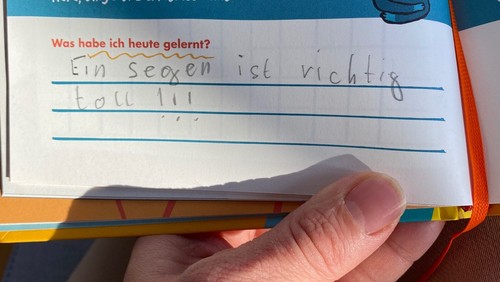 Was habe ich heute gelernt?
Ein segen ist richtig
toll !!!